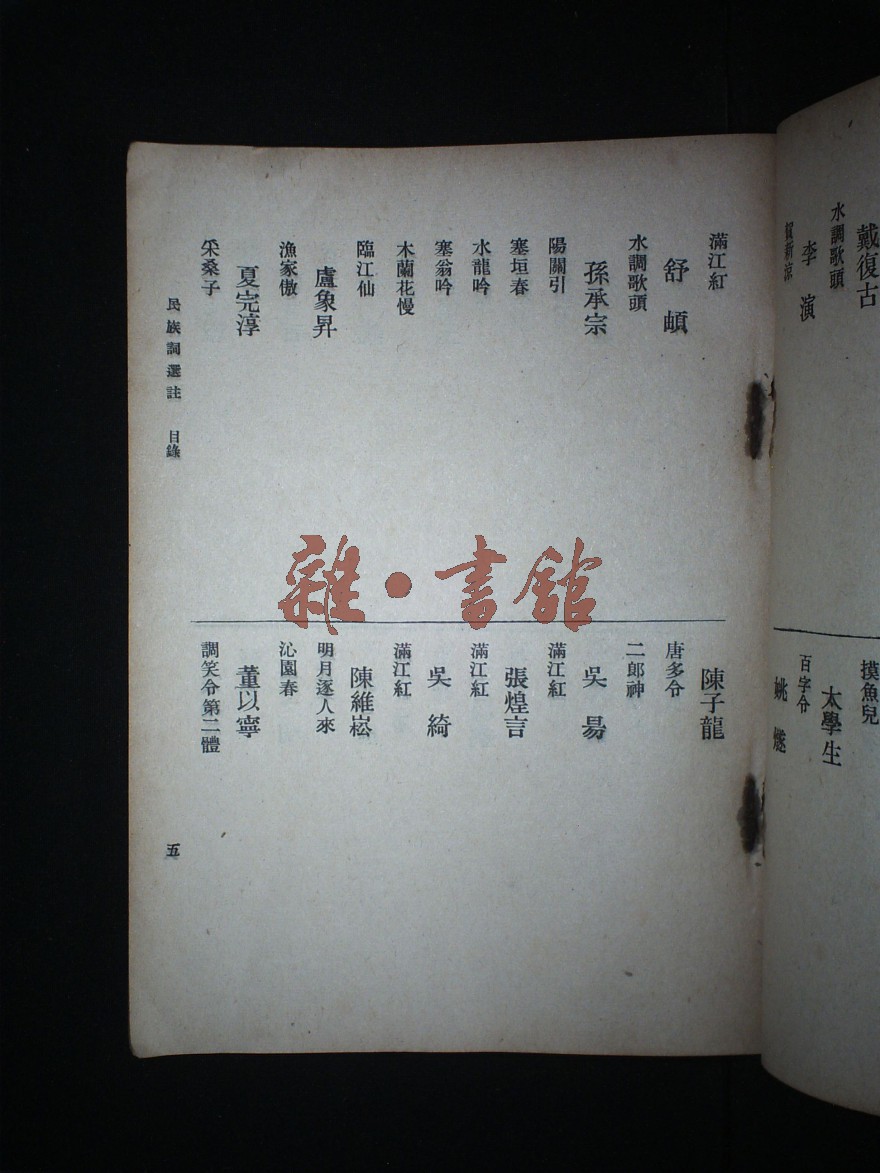 戴復古
水調歌頭
李演
賀新涼
摸魚兒
太學生
百字令
姚燧
滿江紅
舒頔
水調歌頭
孫承宗
陽關引
塞垣春
水龍吟
塞翁吟
木蘭花慢
臨江仙
盧象昇
漁家傲
夏完淳
采桑子
陳子龍
唐多令
二郎神
吳昜
滿江紅
張煌言
滿江紅
吳綺
滿江紅
陳維崧
明月逐人來
沁園春
董以寧
調笑令第二體
民族詞選註 目錄
五
雜·書館